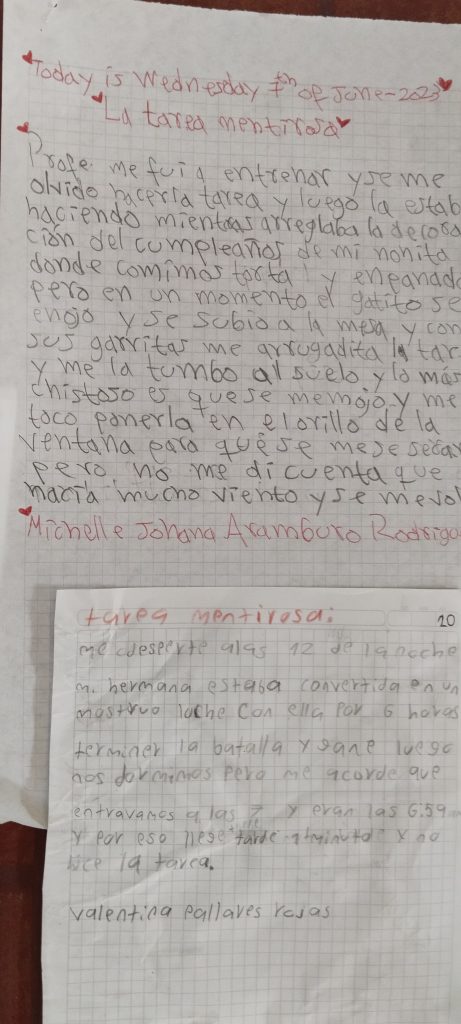 Today is Wednesday 7th of June-2023
"La tarea mentirosa"
Profe me fui a entrenar y se me
olvido hacer la tarea y luego la estab
haciendo mientras arreglaba la decora
ción del cumpleaños de mi nonita
donde comimos torta y enpanada
pero en un momento el gatito se
enojo y se subio a la mesa y con
sus garritas me arrugadita la tar
y me la tumbo al suelo y lo más
chistoso es que se me mojo y me
toco ponerla en el orillo de la
ventana para que se me de secar
pero no me di cuenta que
hacia mucho viento y se me vol
Michelle Johana Aramburo Rodrigu
tarea mentirosa:
20
me desperte a las 12 de la noche
mi hermana estaba convertida en un
mostruo luche con ella por 6 horas
terminer la batalla y gane luego
nos dormimos pero me acorde que
entravamos a las 7 y eran las 6:59
y por eso llege tarde y no
hice la tarea.
valentina pallares rojas